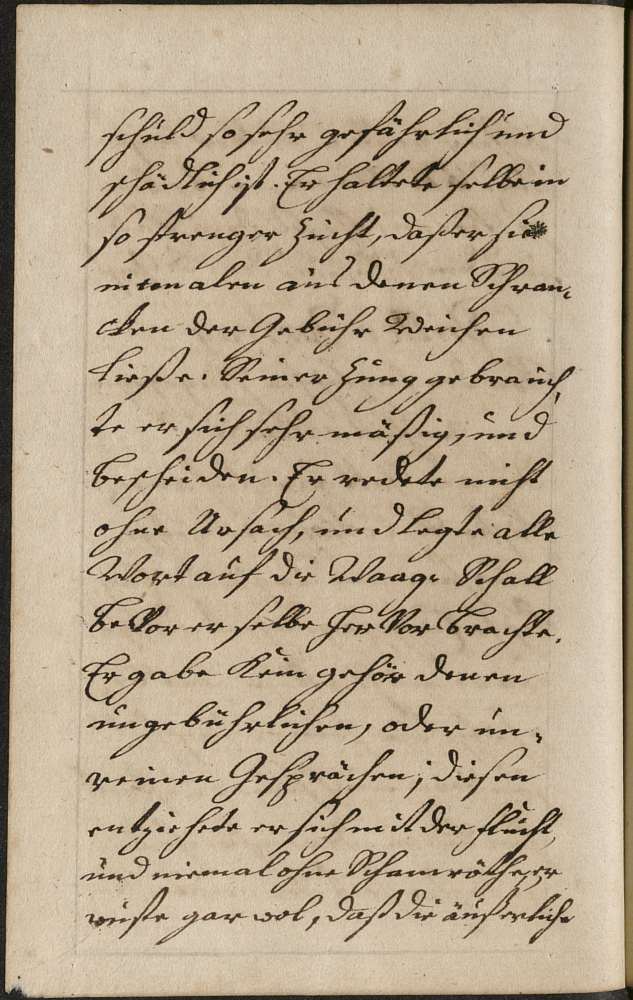 schuld so sehr gefährlich und
schädlich ist. Er haltete selbe in
so strenger Zucht, daß er sie
niemalen aus denen Schran-
cken der Gebühr weichen
ließe. Seiner Zung gebrauch-
te er sich sehr mäßig, und
bescheiden. Er redete nicht
ohne Ursach, und legte alle
Wort auf die Waag-Schall
bevor er selbe hervor brachte.
Er gabe kein gehör denen
ungebührlichen, oder un-
reinen Gesprächen; diesen
entziehete er sich mit der flucht,
und niemal ohne Schamröthe, er
wuste gar wol, daß die äußerliche